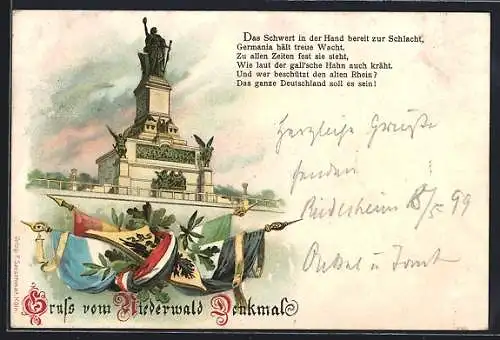 Das Schwert in der Hand bereit zur Schlacht,
Germania hält treue Wacht.
Zu allen Zeiten fest sie steht,
Wie laut der gall'sche Hahn auch kräht.
Und wer beschützt den alten Rhein?
Das ganze Deutschland soll es sein!
Herzliche Grüße
senden
Rüdesheim 18/5 99
Onkel u Tante
Gruss vom Niederwald Denkmal